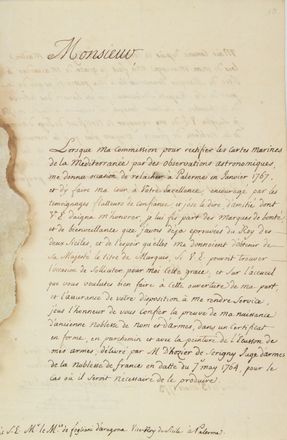 Monsieur,
Lorsque ma Commission pour rectifier les Cartes Marines
de la Mediterranée par des observations astronomiques,
me donna occasion de relacher à Palerme en Janvier 1767,
et d'y faire ma Cour à Votre Excellence, encouragé par les
temoignages flatteurs de Confiance, et j'ose le dire d'amitié dont
V. E. daigna m'honorer, je lui fis part des marques de bonté
et de bienveillance que j'avois deja eprouvées du Roy des
deux Siciles, et de l'espoir qu'elles me donnoient d'obtenir de
Sa Majesté le titre de Marquis, Si V. E. pouvoit trouver
l'occasion de Solliciter pour moi Cette grace, et Sur l'accueil
que vous voulutes bien faire à Cette ouverture de ma part,
et l'assurance de votre disposition à me rendre Service,
j'eus l'honneur de vous Confier la preuve de ma naissance
d'ancienne noblesse de nom et d'armes, dans un Certificat
en forme, en parchemin et avec la peinture de l'Ecusson de
mes armes, delivré par M. D'hozier de Serigny Juge d'armes
de la noblesse de france en datte du 7 may 1764, pour le
cas où il Seroit necessaire de le produire.
S. E. Mr. le Mis. de fogliani d'aragona Vice-Roy de Sicile à Palerme